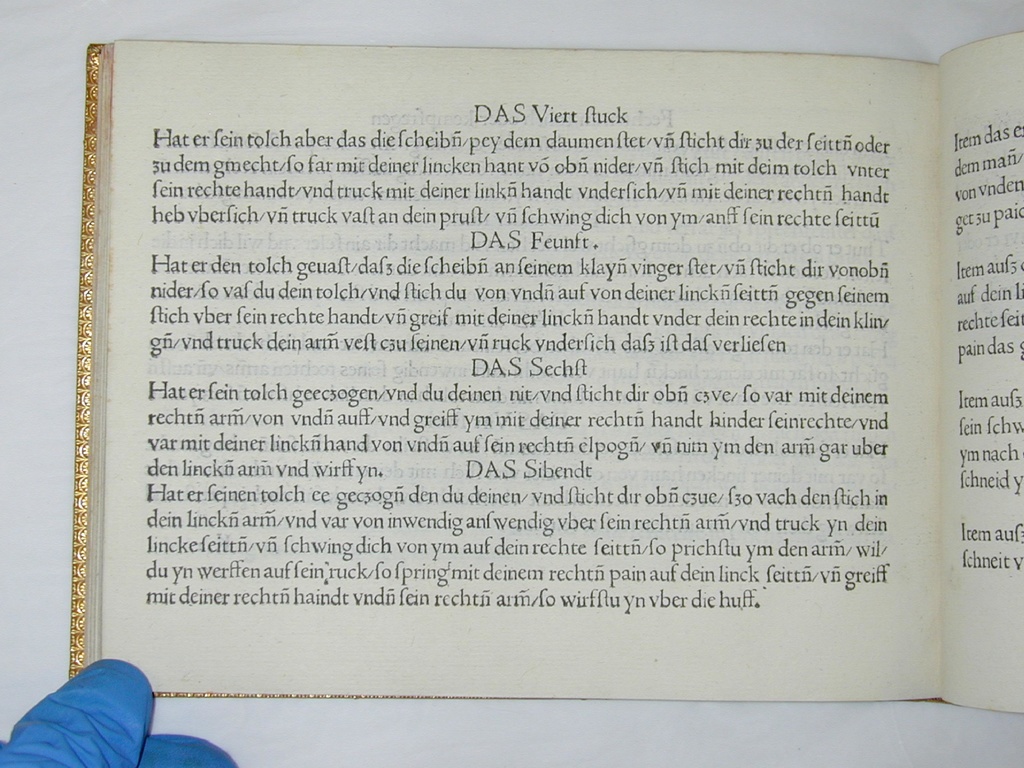 DAS Viert ſtuck
Hat er ſein tolch aber das die ſcheibn̄/ pey dem daumen ſtet/ vn̄ ſticht dir zu der ſeittn̄ oder
zu dem gmecht/ ſo far mit deiner lincken hant vō obn̄ nider/ vn̄ ſtich mit deim tolch vnter
ſein rechte handt/ vnd truck mit deiner linkn̄ handt vnderſich/ vn̄ mit deiner rechtn̄ handt
heb vberſich/ vn̄ truck vaſt an dein pruſt/ vn̄ ſchwing dich von ym/ anff ſein rechte ſeittū
DAS Feunft.
Hat er den tolch geuaſt/ daſz die ſcheibn̄ an ſeinem klayn̄ vinger ſtet/ vn̄ ſticht dir vonobn̄
nider/ ſo vaſ du dein tolch/ vnd ſtich du von vndn̄ auf von deiner linckn̄ ſeittn̄ gegen ſeinem
ſtich vber ſein rechte handt/ vn̄ greif mit deiner linckn̄ handt vnder dein rechte in dein klin/
gn̄/ vnd truck dein arm̄ veſt czu ſeinen/ vn̄ ruck vnderſich daſz iſt daſ verlieſen
DAS Sechſt
Hat er ſein tolch geeczogen/ vnd du deinen nit/ vnd ſticht dir obn̄ czve/ ſo var mit deinem
rechtn̄ arm̄/ von vndn̄ auff/ vnd greiff ym mit deiner rechtn̄ handt hinder ſeinrechte/ vnd
var mit deiner linckn̄ hand von vndn̄ auf ſein rechtn̄ elpogn̄/ vn̄ nim ym den arm̄ gar uber
den linckn̄ arm̄ vnd wirff yn. DAS Sibendt
Hat er ſeinen tolch ee geczogn̄ den du deinen/ vnd ſticht dir obn̄ czue/ ſzo vach den ſtich in
dein linckn̄ arm̄/ vnd var von inwendig anſwendig vber ſein rechtn̄ arm̄/ vnd truck yn dein
lincke ſeittn̄/ vn̄ ſchwing dich von ym auf dein rechte ſeittn̄/ ſo prichſtu ym den arm̄/ wil/
du yn werffen auf ſein ruck/ ſo ſpring mit deinem rechtn̄ pain auf dein linck ſeittn̄/ vn̄ greiff
mit deiner rechtn̄ haindt vndn̄ ſein rechtn̄ arm̄/ ſo wirfſtu yn vber die huff.
Item das
dem man̄/
von vnden
get zu
Item auſz
auf dein
rechte
pain das
Item auſz
ſein
ym nach
ſchneid
Item auſz
ſchneit